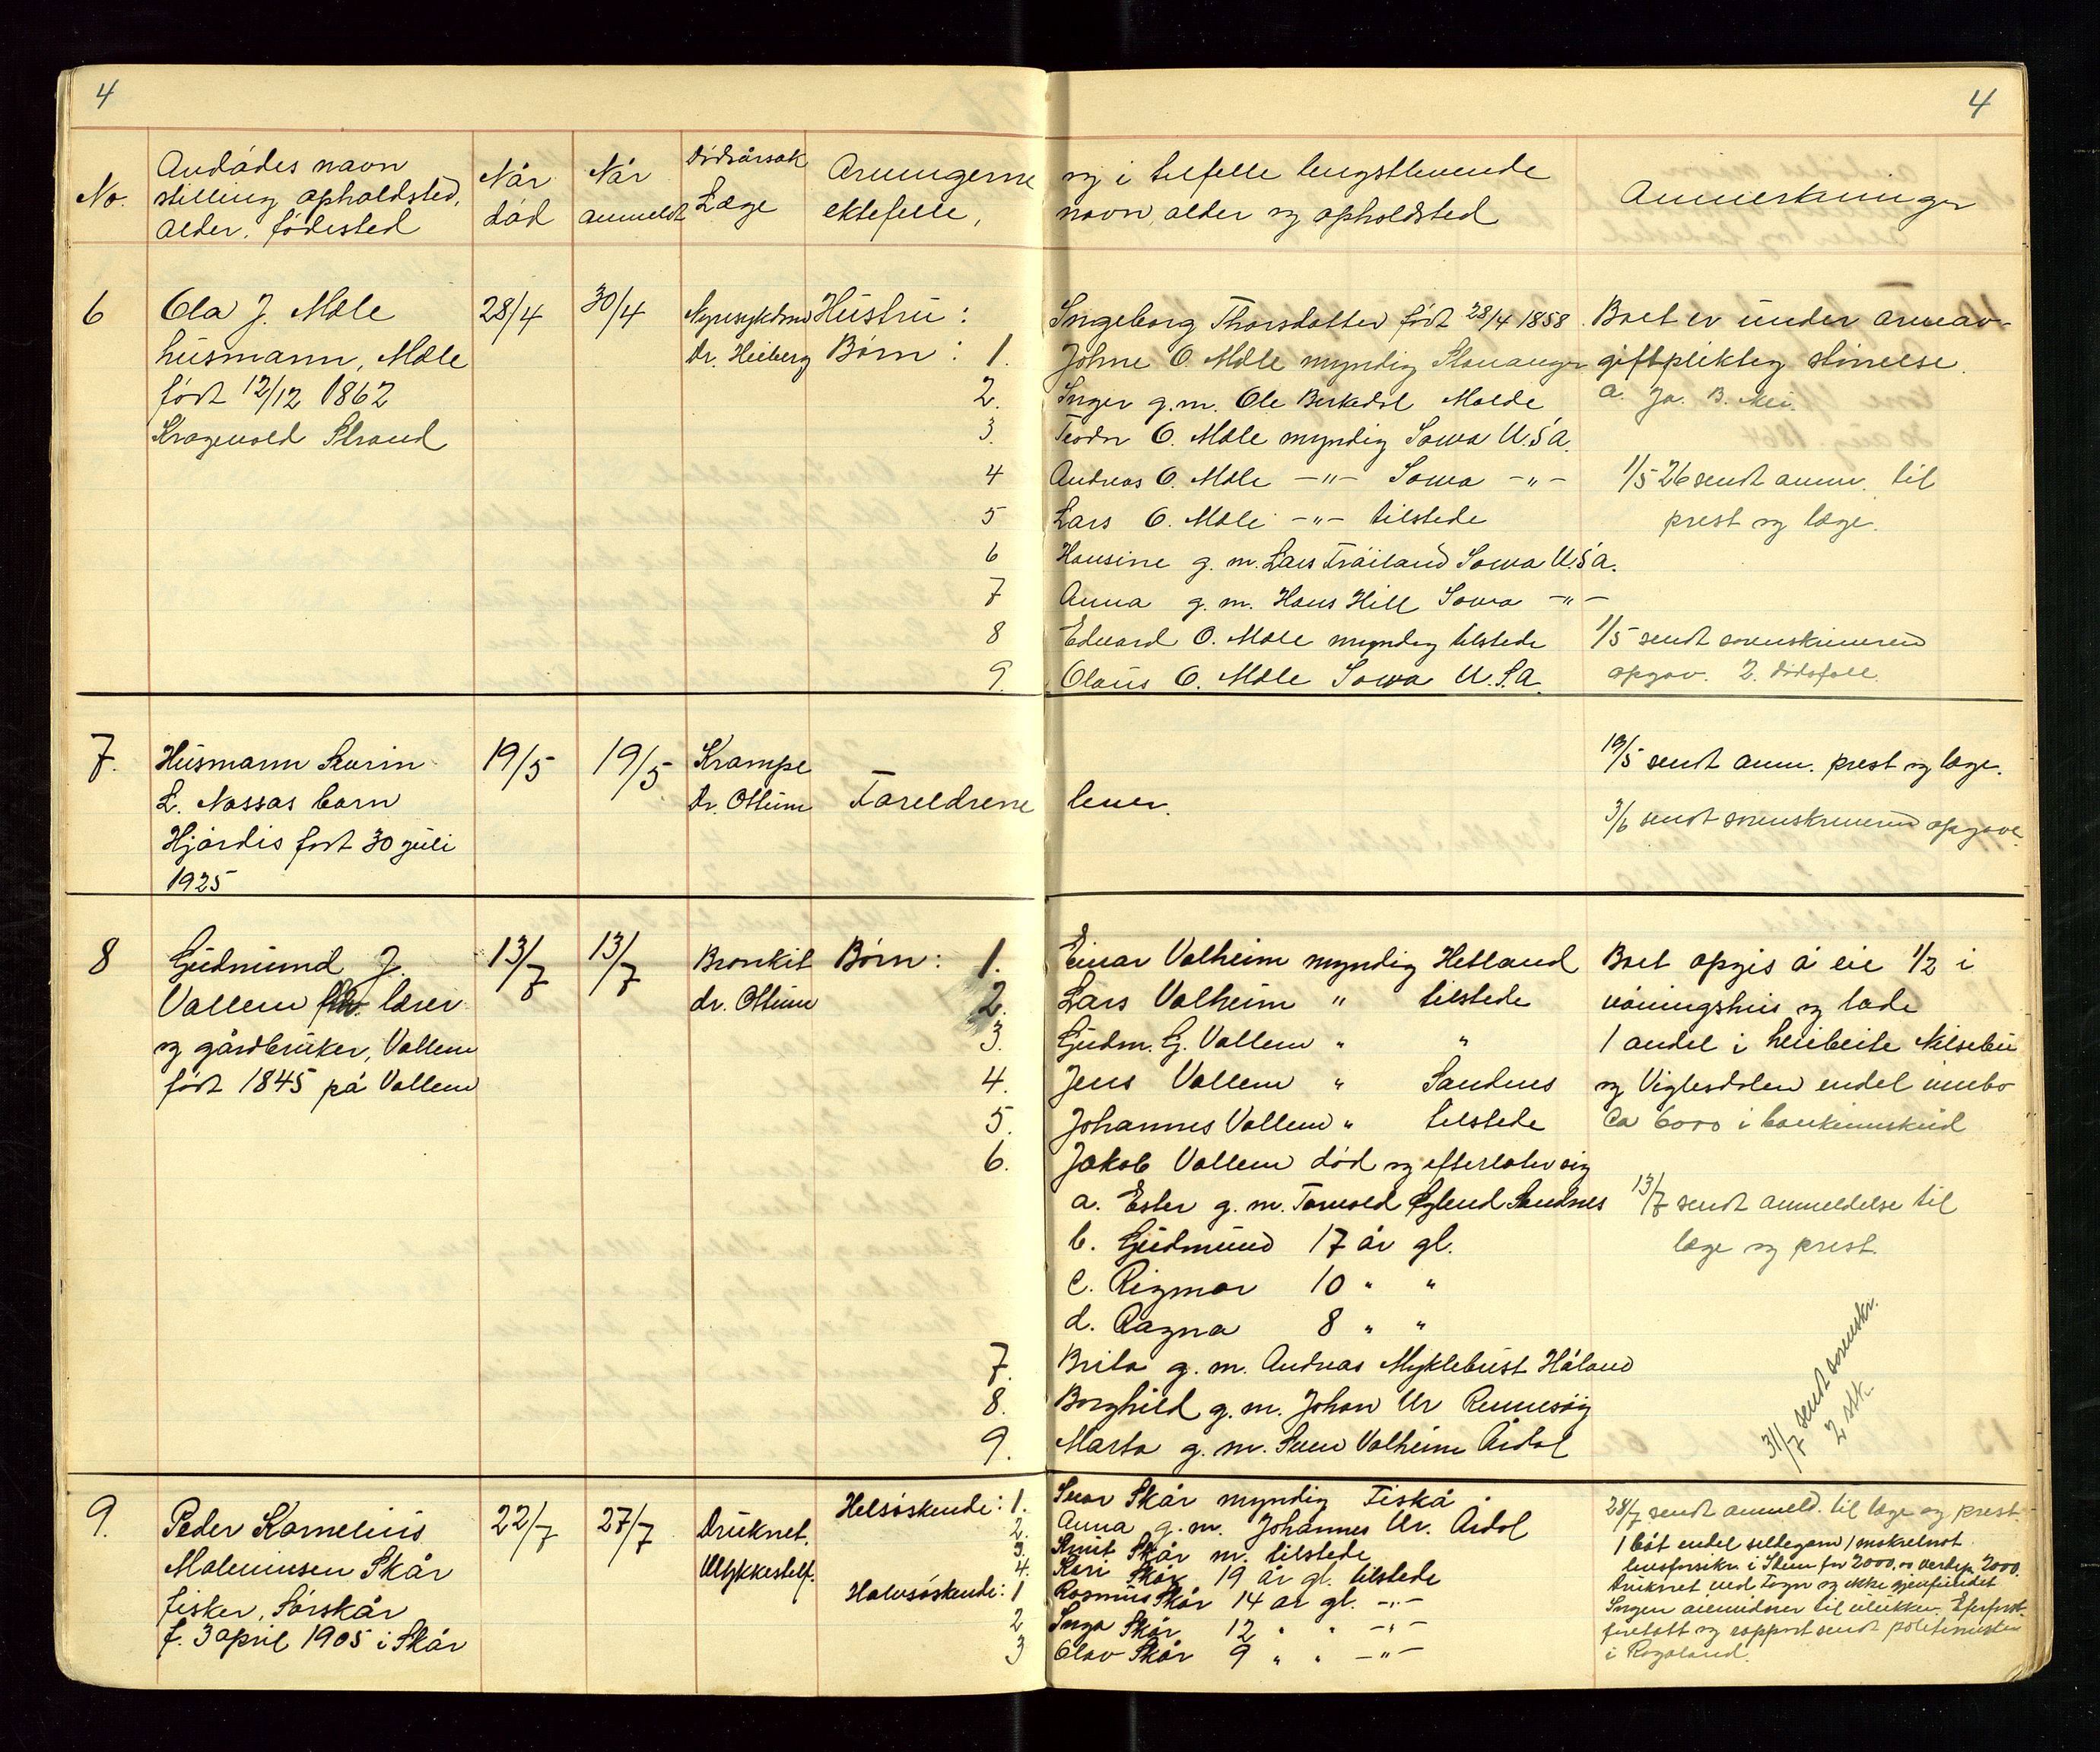 4
4
No.
Avdødes navn
stilling opholdsted,
alder, fødested
Når
død
Når
anmeldt
Dødsårsak
Læge
Arvingerne og i tilfelle lengstlevende
ektefelle, navn, alder og opholdsted
Anmerkninger
6
Ola J. Mæle
husmann, Mæle
født 12/12 1862
Strand
28/4
30/4
Nyresykdom
Dr. Heiberg
Hustru: Ingeborg Thorsdatter født 28/4 1858
Børn: 1. Johne O. Mæle myndig Stavanger
2. Inger g.m. Ole Berkedal Molde
3. Teodor O. Mæle myndig Iowa U.S.A.
4 Andreas O. Mæle -"- Iowa -"-
5 Lars O. Mæle -"- tilstede
6 Hansine g.m. Lars Iowa U.S.A.
7 Anna g.m. Hans Hill Iowa -"-
8 Edvard O. Mæle myndig tilstede
9. Olaus O. Mæle Iowa U.S.A.
Boet er under arveav-
giftspliktig størrelse.
a. Ja. B. Nei.
1/5 26 sendt anm. til
prest og læge.
1/5 sendt sorenskriveren
opgav. 2. dødsfall.
7.
Husmann Severin
L. Nessas barn
Hjørdis født 30 juli
1925
19/5
19/5
Krampe
Dr. Ottum
Foreldrene lever.
19/5 sendt anm. prest og læge.
3/6 sendt sorenskriveren opgave
8
Gudmund J.
Vallem lærer
og gårdbruker, Vallem
født 1845 på Vallem
13/7
13/7
Bronkit
dr. Ottum
Børn: 1. Einar Valheim myndig Hetland
2. Lars Valheim " tilstede
3. Gudm. G. Vallem " "
4. Jens Vallem " Sandnes
5. Johannes Vallem " tilstede
6. Jakob Vallem død og efterlater sig
a. Ester g.m. Torvald Sandnes
b. Gudmund 17 år gl.
c. Rigmor 10 " "
d. Ragna 8 " "
7. Brita g.m. Andreas Myklebust Håland
8. Borghild g.m. Johan Ur Rennesøy
9. Marta g.m. Sven Valheim Årdal
Boet opgis å eie 1/2 i
våningshus og løde
1 andel i heibeite Nilsebu
og Viglesdalen endel innbo
Ca 6000 i bankinnskud
13/7 sendt anmeldelse til
læge og prest.
31/7 sendt sorenskr.
2 stk.
9.
Peder Kornelius
Maleniusen Skår
fisker, Sørskår
f. 3 april 1905 i Skår
22/7
27/7
Druknet.
Ulykkestilf.
Helsøskende: 1. Ivar Skår myndig Fiskå
2. Anna g.m. Johannes Ur. Årdal
3. Knut Skår m. tilstede
4. Kari Skår 19 år gl. tilstede
Halvsøskende: 1 Rasmus Skår 14 år gl. -"-
2 Inga Skår 12 " " -"-
3 Olav Skår 9 " " -"-
28/7 sendt anmeld. til læge og prest.
1 båt endel sildegarn 1 makrelnot
livsforsikr. i for 2000,00 verdip. 2000.
Druknet ved og ikke gjenfundet
Ingen øienvidner til ulykken.
foretatt og rapport sendt politimesteren
i Rogaland.